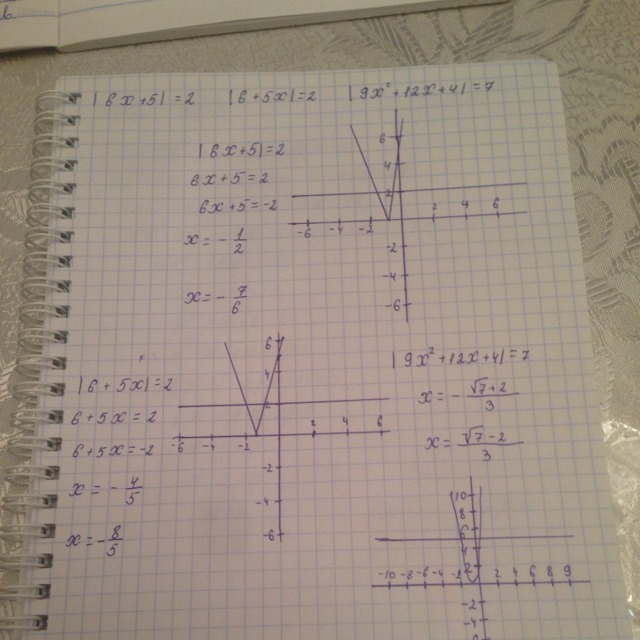 |6x+5|=2 |6+5x|=2 |9x²+12x+4|=7
|6x+5|=2
6x+5=2
6x+5=-2
x=-1/2
x=-7/6
6
4
2
-6 -4 -2 2 4 6
-2
-4
-6
|6+5x|=2
6+5x=2
6+5x=-2
x=-4/5
x=-8/5
6
4
2
-6 -4 -2 2 4 6
-2
-4
-6
|9x²+12x+4|=7
x=-√7+2/3
x=√7-2/3
10
8
6
4
2
-10 -8 -6 -4 -2 2 4 6 8 9
-2
-4